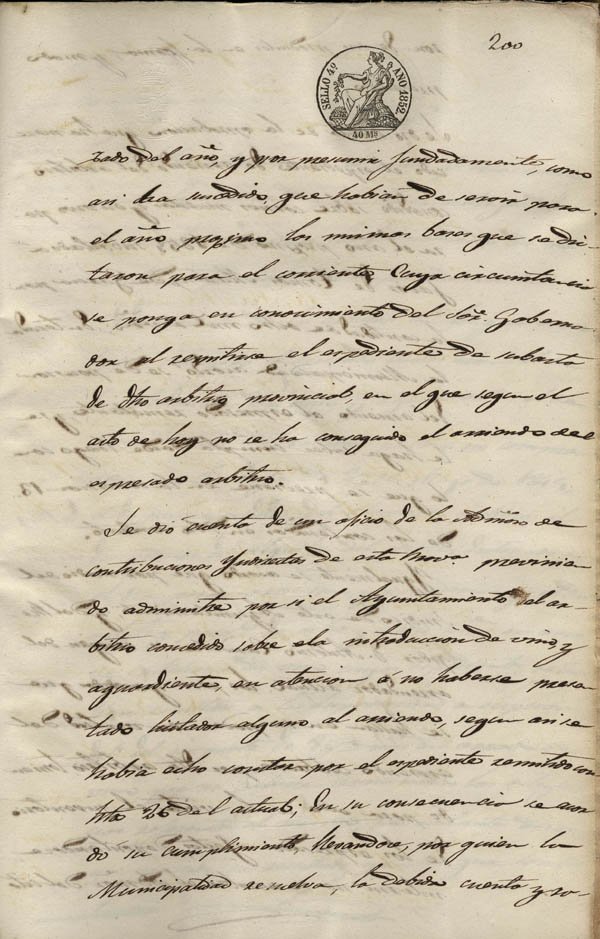 200
SELLO 4º AÑO 1852.
40 Ms
zado del año, y por presumir fundadamente, como
asi ha sucedido, que habian de servir para
el año proximo las mismas bases que se dic-
taron para el corriente. Cuya circunstancia
se ponga en conocimiento del Sor. Goberna-
dor al remitirse el espediente de subasta
de dho arbitrio provincial, en el que segun el
acto de hoy no se ha conseguido el arriendo del
espresado arbitrio.
Se dió cuenta de un oficio de la Admon de
contribuciones Yndirectas de esta Prova. previnien-
do administre por si el Ayuntamiento el ar-
bitrio concedido sobre la introduccion de vino, y
aguardiente, en atencion á no haberse presen-
tado licitador alguno al arriendo, segun asi se
habia echo constar por el espediente remitido con
fha 26 del actual; En su consecuencia se acor-
dó su cumplimiento, llevandose, por quien la
Municipalidad resuelva, la debida cuenta y ra-